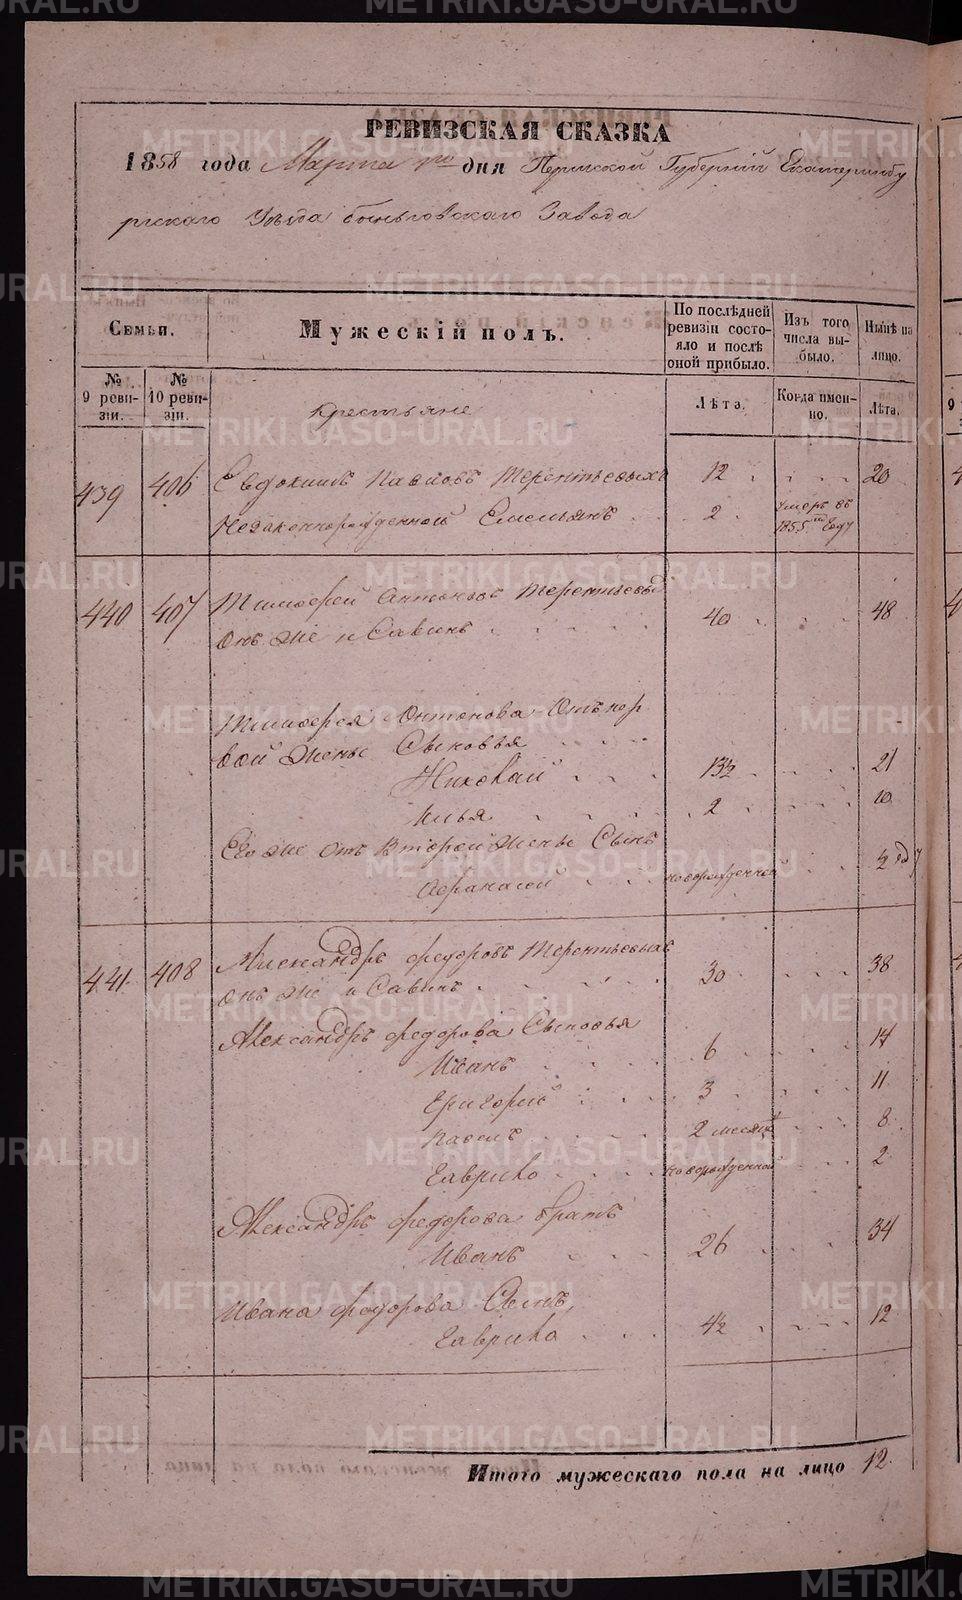 РЕВИЗСКАЯ СКАЗКА
1858 года Марта дня Пермской Губернии Екатеринбу
ргскаго Уезда быньговскаго Завода
Семьи.
Мужескій полъ.
По послѣдней ревизіи состояло и послѣ оной прибыло.
Изъ того числа выбыло.
Нынѣ на лицо.
№ 9 ревизіи.
№ 10 ревизіи.
Лѣта.
Когда именно.
Лѣта.
Крестьяне
439 406 Евдокимъ Павловъ Терентьевыхъ 12 20
Незаконнорожденной Емельянъ 2 умеръ въ 1855 Году
440 407 Тимофей Антоновъ Терентьевъ
Онъ же и Савинъ 40 48
Тимофея Антонова Отъ пер
вой жены Сыновья
Николай 13½ 21
Илья 2 10
Его же отъ Второй жены Сынъ
Афанасей новорожденной
441 408 Александръ федоровъ Терентьевыхъ
Онъ же и Савинъ 30 38
Александръ федорова Сыновья
Иванъ 6 14
Григорий 3 11
Павелъ 2 месяца 8
Гаврило новорожденной 2
Александръ федорова братъ
Иванъ 26 34
Ивана федорова Сынъ,
Гаврило 4½ 12
Итого мужескаго пола на лицо 12
METRIKI.GASO-URAL.RU